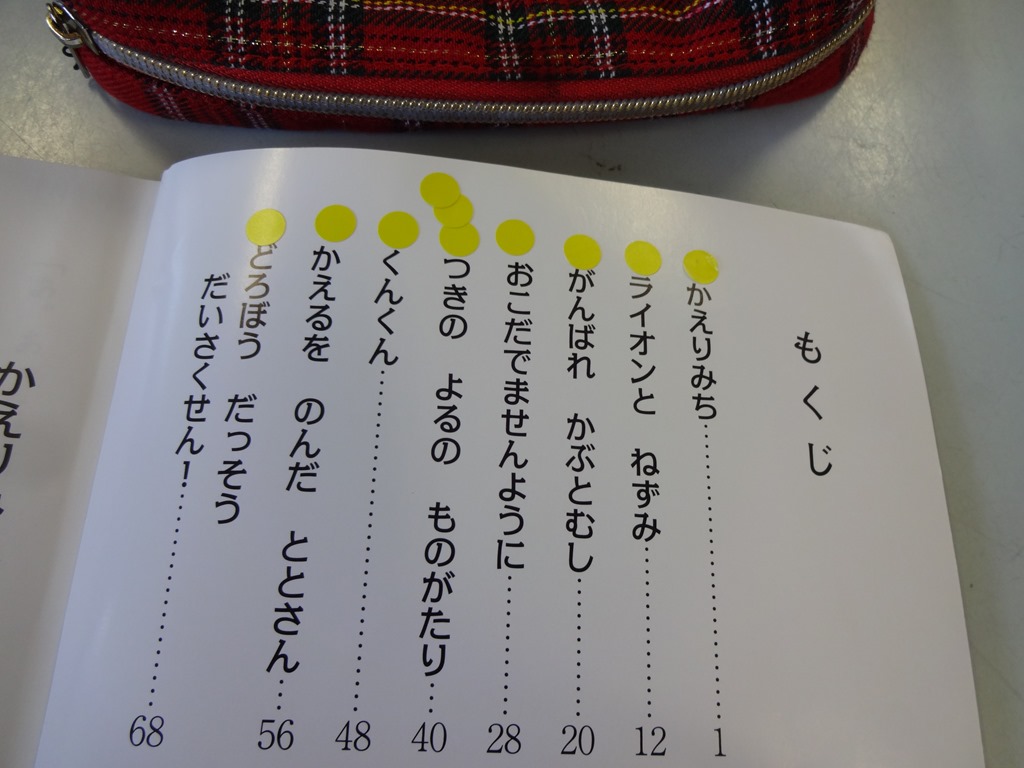 もくじ
かえりみち……………1
ライオンと　ねずみ……………12
がんばれ　かぶとむし……………20
おこだでませんように……………28
つきの　よるの　ものがたり……40
くんくん……………48
かえるを　のんだ　ととさん……56
どろぼう　だっそう
だいさくせん！……………68
かえり